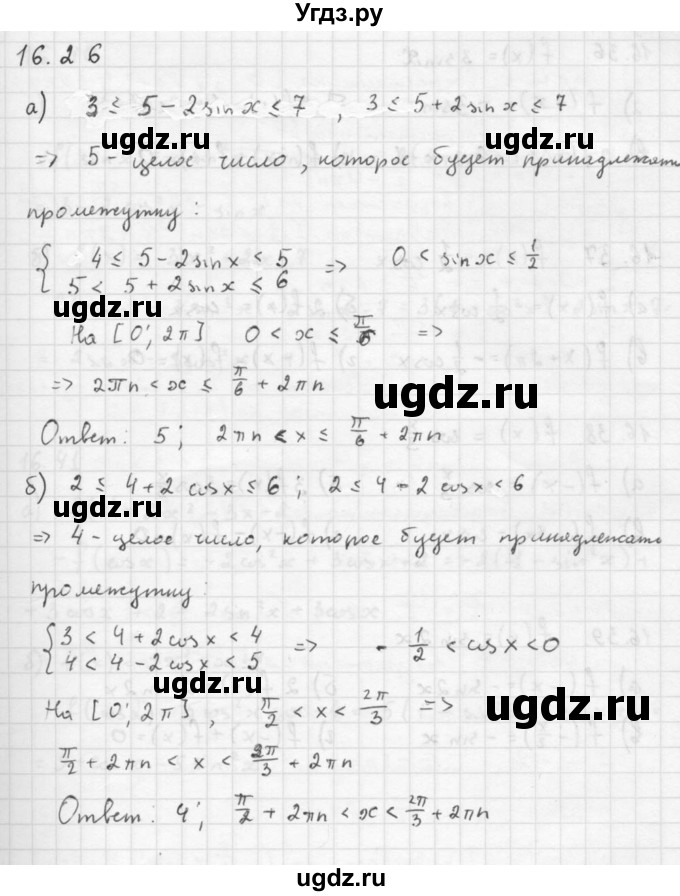 Угдз.ру
16.26
а) 3 ≤ 5 - 2 sin x ≤ 7 , 3 ≤ 5 + 2 sin x ≤ 7
ugdz.ru ugdz.ru
=> 5 - целое число, которое будет принадлежать
промежутку :
{ 4 ≤ 5 - 2 sin x < 5 => 0 < sin x ≤ 1/2
5 < 5 + 2 sin x ≤ 6
На [0; 2π] 0 < x ≤ π/6 =>
=> 2πn < x ≤ π/6 + 2πn
ugdz.ru
Ответ: 5 ; 2πn < x ≤ π/6 + 2πn
б) 2 ≤ 4 + 2 cos x ≤ 6 ; 2 ≤ 4 - 2 cos x < 6
ugdz.ru ugdz.ru
=> 4 - целое число, которое будет принадлежать
промежутку :
{ 3 < 4 + 2 cos x < 4 => - 1/2 < cos x < 0
4 < 4 - 2 cos x < 5
ugdz.ru
На [0; 2π] , π/2 < x < 2π/3 =>
ugdz.ru
π/2 + 2πn < x < 2π/3 + 2πn
Ответ: 4 ; π/2 + 2πn < x < 2π/3 + 2πn
ugdz.ru ugdz.ru